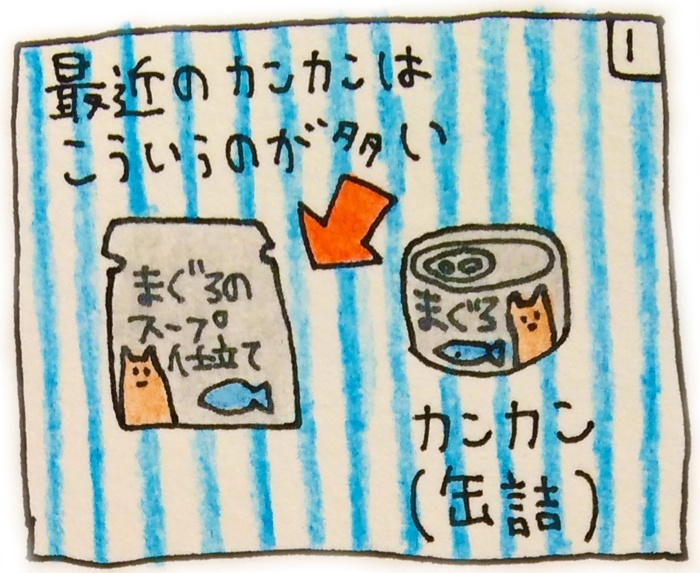 1
最近のカンカンは
こういうのが多い
まぐろの
スープ
仕立て
まぐろ
カンカン
(缶詰)